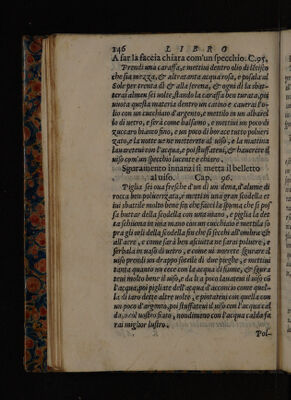 146 LIBRO
A far la faccia chiara com'un specchio. C.95.
Prendi una caraffa, e mettivi dentro olio di
che sia mezza, & altratanta acqua rosa, e posala al
Sole per trenta dì & alla serena, & ogni dì la sbat-
terai alcune sei volte, stando la caraffa ben turata, poi
vuota questa materia dentro un catino e caverai l'o-
lio con un cucchiaio d'argento, e mettilo in un alba-
lo di vetro, e serà come balsamo, e mettivi un poco di
zuccaro bianco fino, e un poco di borace tutto polueri
zato, e la notte ue ne metterete al uiso, e la mattina
lauaretevi con l'acqua, e poi & hauerete il
uiso com'un specchio lucente e chiaro.
Sguramento innanzi si metta il belletto
al uiso. Cap. 96.
Piglia sei oua fresche d'un dì una dena, d'alume di
rocca ben poluerizata, e metti in una gran scodella et
iui sbattile molto bene fin che facci la spoma che si pos
sa buttar della scodella con una mano, e piglia la det-
ta schiuma in una mano con un cucchiaio e mettila so
pra gli orli della scodella fin che si secchi all'ombra &
all'aere, e come sarà ben asciutta ne farai poluere, e
serbala in uaso di uetro, e come ui uorrete sgurare al
uiso prendi un drappo sottile di due pieghe, e mettivi
tanta quanto un cece con la acqua di fiume, & sgura
tevi molto bene il uiso, e da lì a poco lauatevi il uiso cō
l'acqua, poi pigliate dell'acqua d'acconcio come quel-
la di taro dette altre uolte, e pintatevi con quella con
un poco d'argento, poi stuffatevi il uiso con l'acqua cal
da, o col uostro fiato, nondimeno con l'acqua calda fa
rai miglior lustro.
Pol-